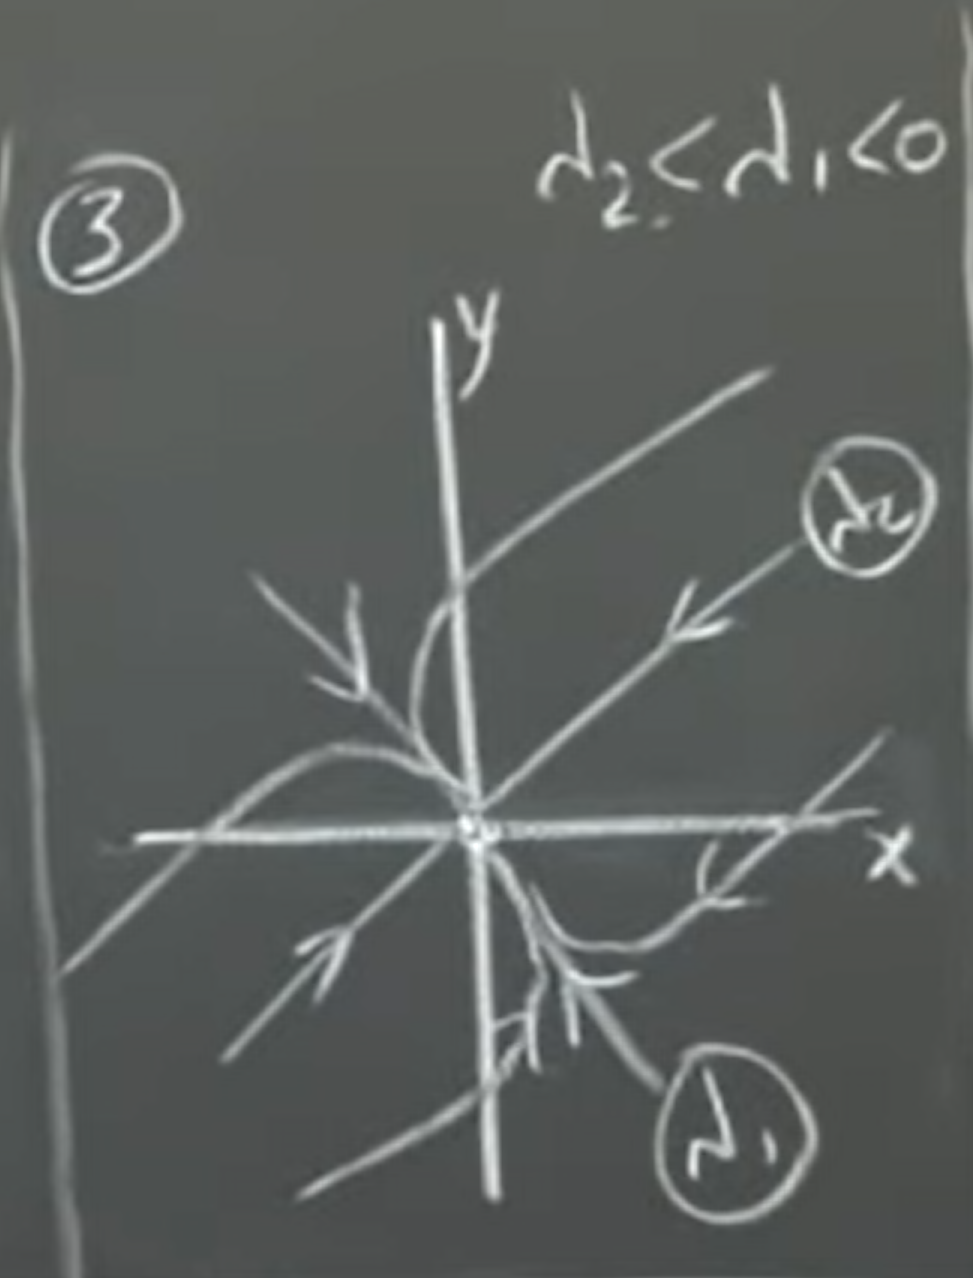 λ₂<λ₁<0
③
y
λ₂
x
λ₁